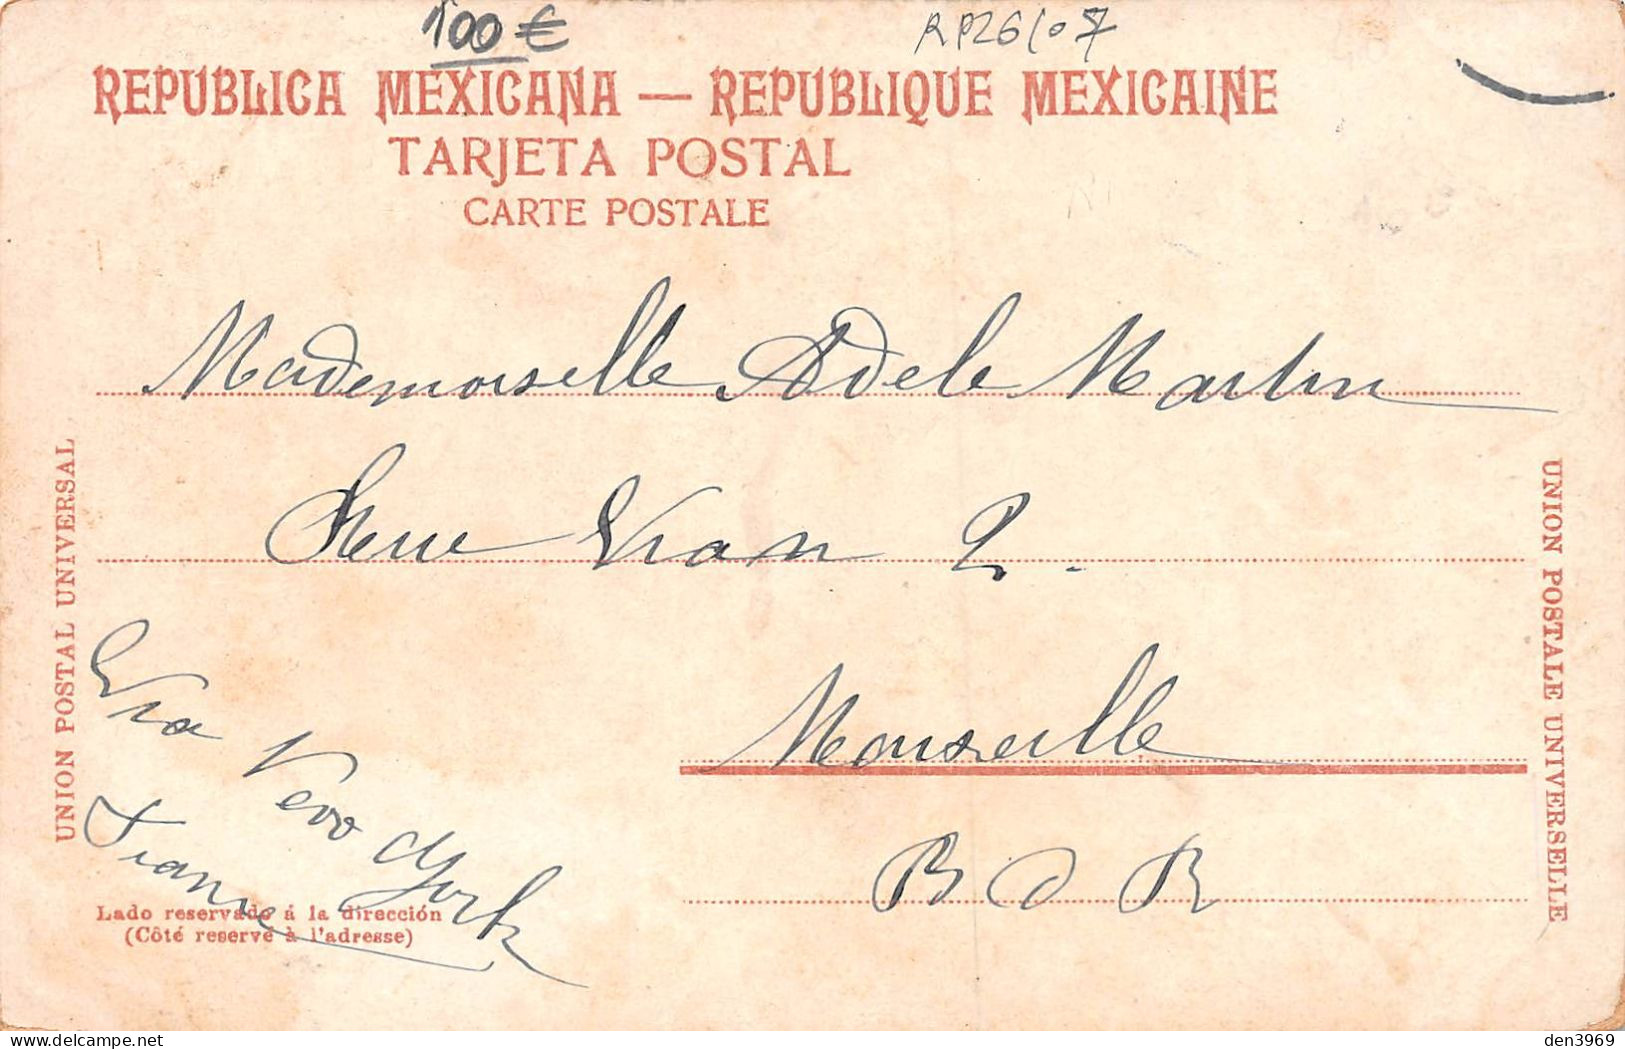 100 €
RP26/07
REPUBLICA MEXICANA — REPUBLIQUE MEXICAINE
TARJETA POSTAL
CARTE POSTALE
Mademoiselle Adele Martin
Rue Vian 2.
Marseille
B D R
Via New York
France
UNION POSTAL UNIVERSAL
UNION POSTALE UNIVERSELLE
Lado reservado á la dirección
(Côté reservé à l'adresse)
delcampe.net
den3969